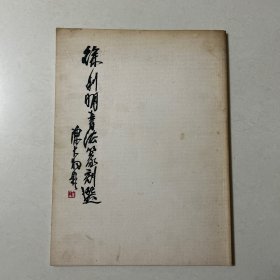 徐利明书法篆刻选
陈大羽题